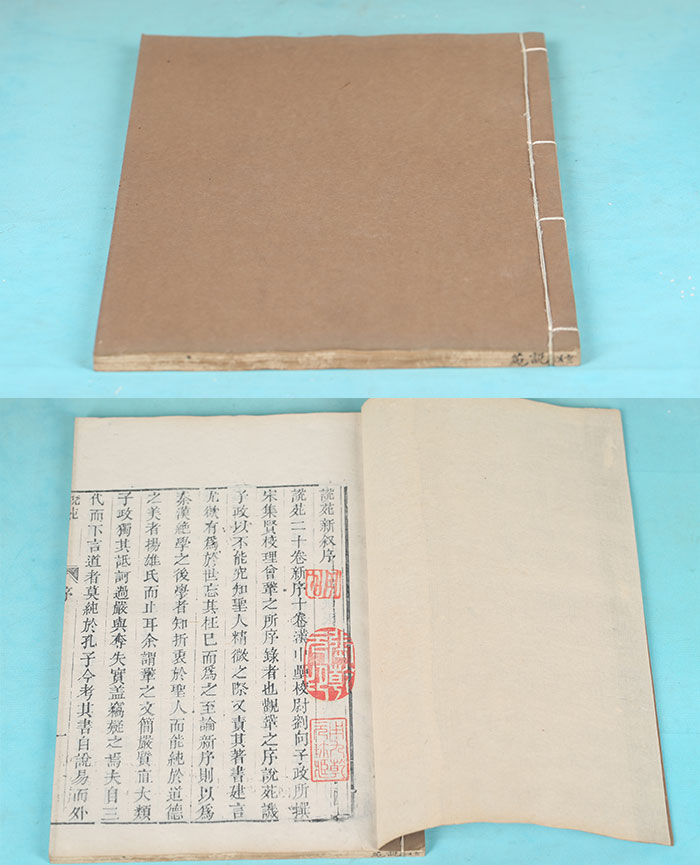 說苑
說苑新叙序
說苑二十卷新序十卷漢中壘校尉劉向子政所撰
宋集賢校理曾鞏之所序錄者也觀鞏之序說苑譏
子政以不能究知聖人精微之際又責其著書建言
尤欲有爲於世忘其枉已而爲之至論新序則以爲
秦漢絶學之後學者知折衷於聖人而能純於道德
之美者揚雄氏而止耳余謂鞏之文簡嚴質直大類
子政獨其詆訶過嚴與奪失實盖竊疑之焉夫自三
代而下言道者莫純於孔子今考其書自說易而外
說苑
序
一